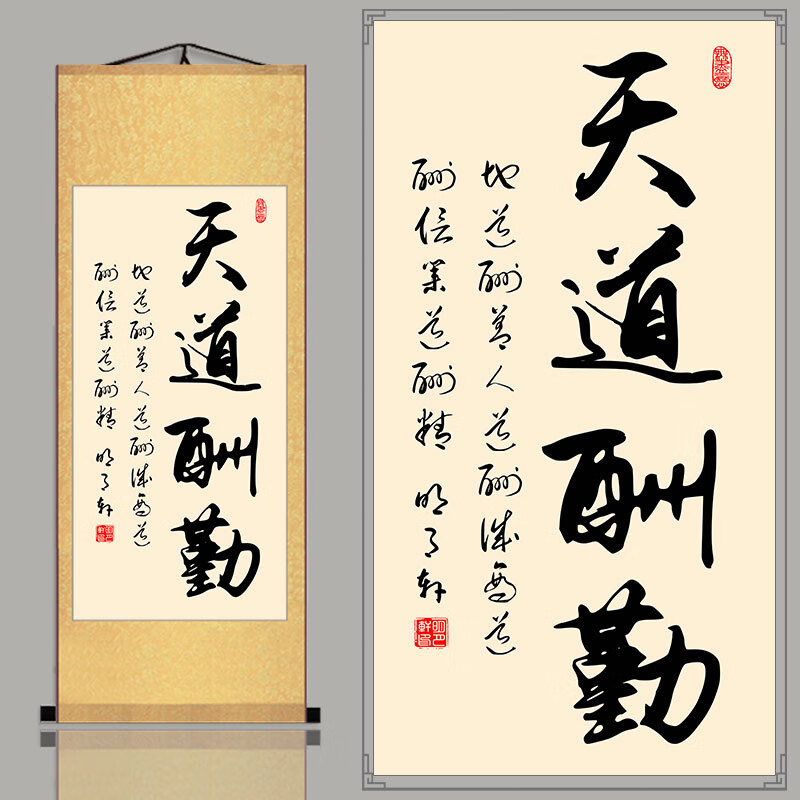 天道酬勤
地道酬善人道酬诚商道
酬信業道酬精 明月轩
天道酬勤
地道酬善人道酬诚商道
酬信業道酬精 明月轩